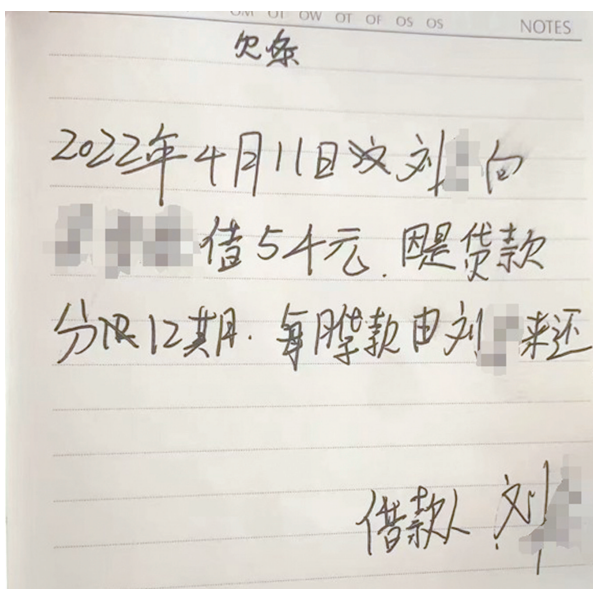 OM OT OW OT OF OS OS NOTES
欠条
2022年4月11日 刘 向
借54元.因是货款
分 12期.每月 款由刘 来还
借款人 刘